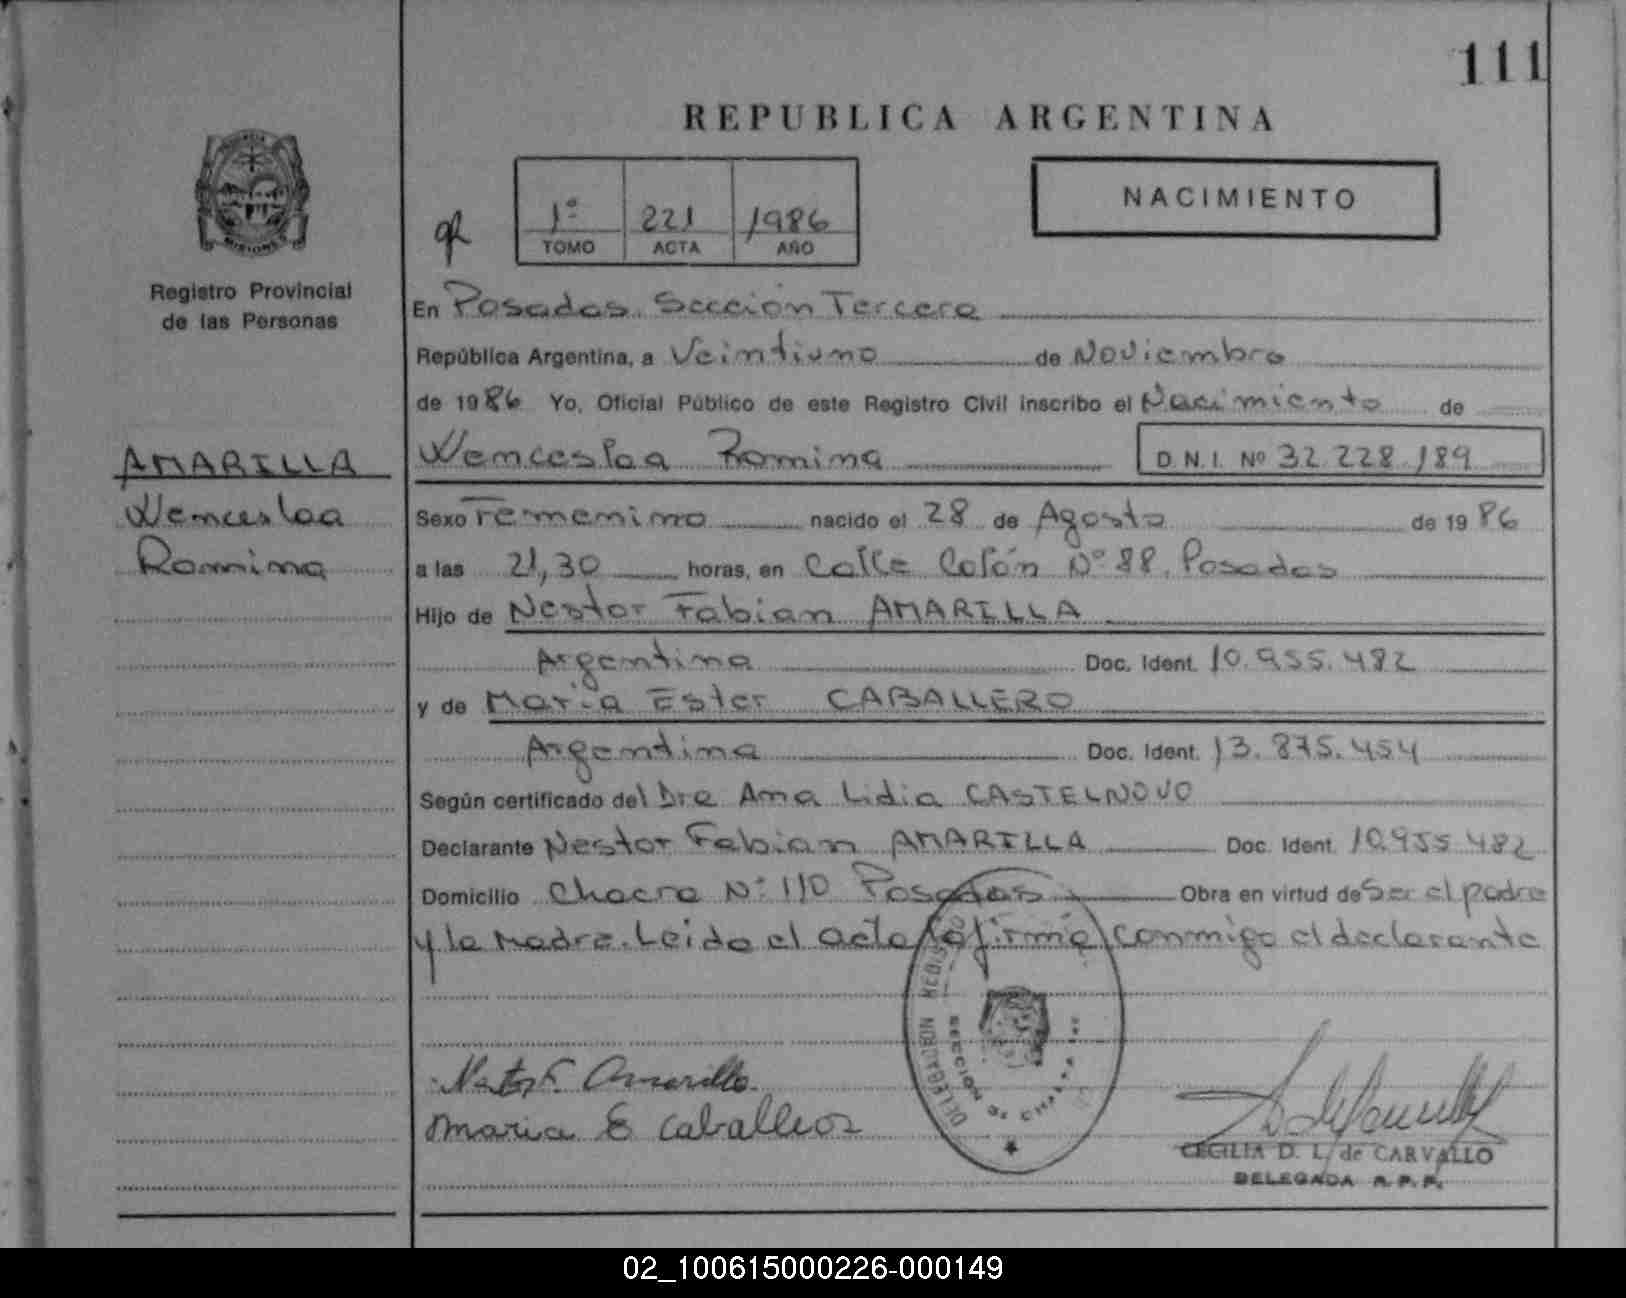 111
REPUBLICA ARGENTINA
NACIMIENTO
1º 221 1986
TOMO ACTA AÑO
MISIONES
Registro Provincial
de las Personas
En Posadas. Sección Tercera
República Argentina, a Veintiuno de Noviembre
de 1986 Yo, Oficial Público de este Registro Civil inscribo el Nacimiento de
AMARILLA
Wenceslaa Romina D.N.I. Nº 32.228.189
Wenceslaa
Romina
Sexo Femenino nacido el 28 de Agosto de 1986
a las 21,30 horas, en Calle Colón Nº 88. Posadas
Hijo de Nestor Fabian AMARILLA
Argentina Doc. Ident. 10.955.482
y de Maria Ester CABALLERO
Argentina Doc. Ident. 13.875.454
Según certificado del Dra Ana Lidia CASTELNOVO
Declarante Nestor Fabian AMARILLA Doc. Ident. 10.955.482
Domicilio Chacra Nº 110 Posadas Obra en virtud de Ser el padre
y la Madre. Leida el acta la firma conmigo el declarante
Nestor F. Amarilla
Maria E Caballero
SECCION
CECILIA D. L. de CARVALLO
DELEGADA R.P.P.
02_100615000226-000149